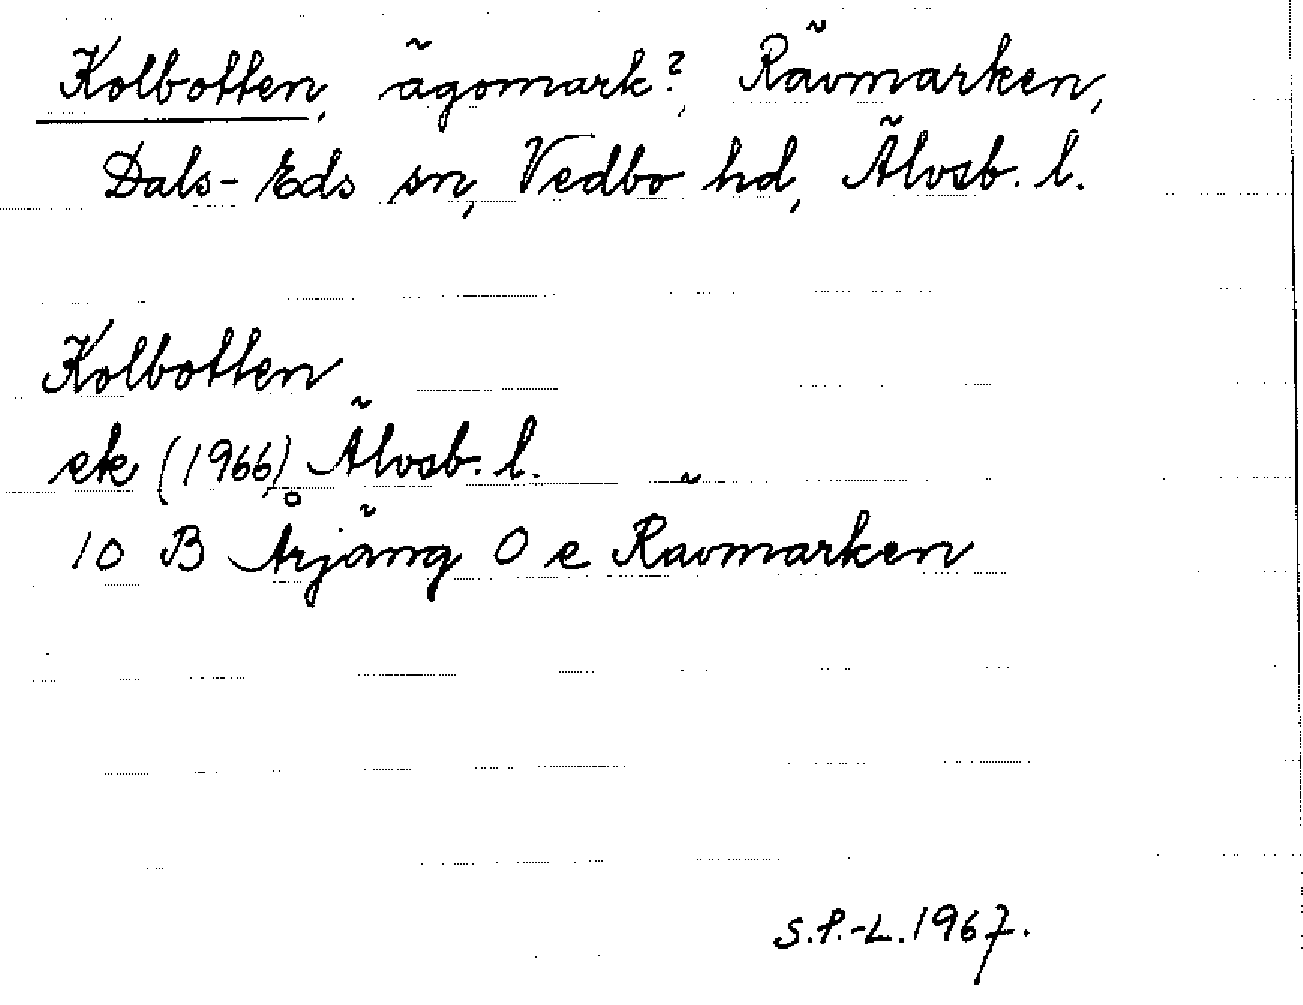 Kolbotten, ägomark?, Rävmarken,
Dals-Eds sn, Vedbo hd, Älvsb. l.
Kolbotten
ek (1966) Älvsb. l.
10 B Årjäng 0 e Rävmarken
S.P.-L. 1967.